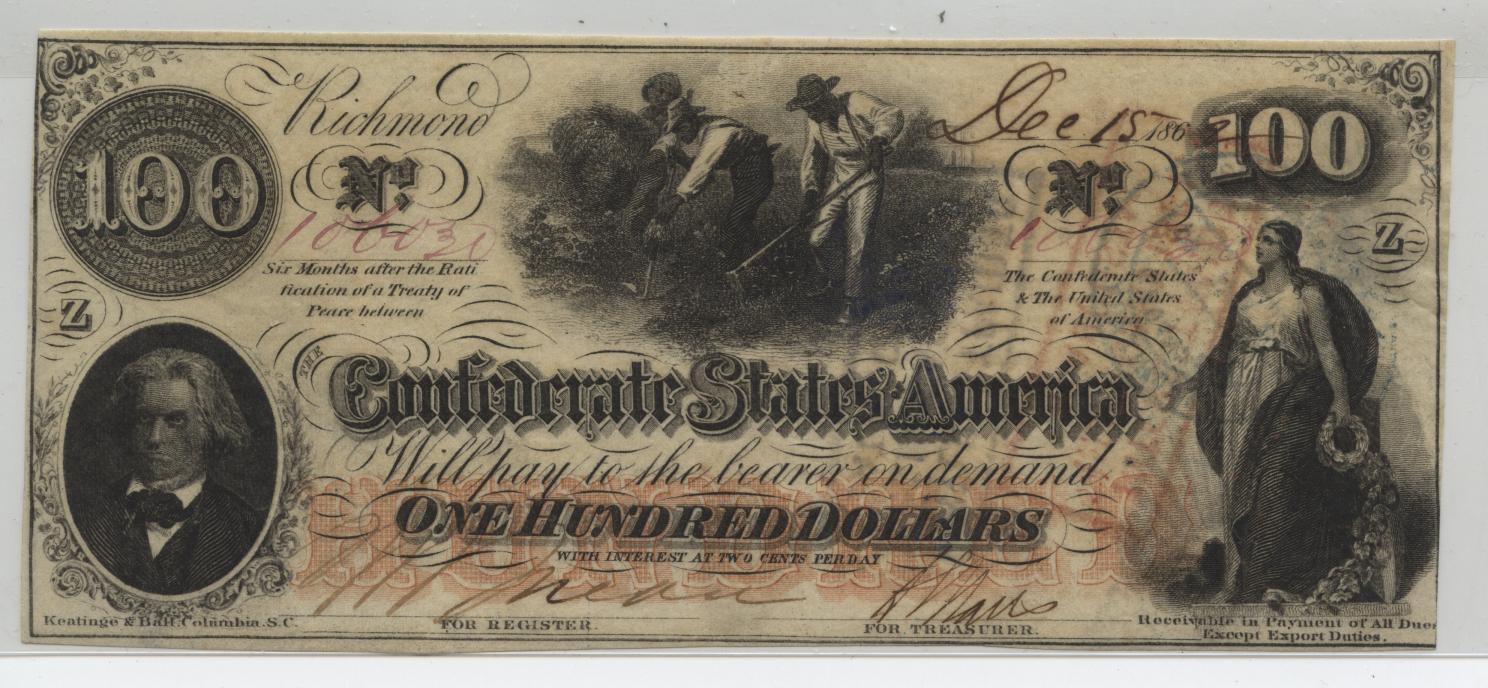 Richmond
Dec 15 186
100
100
No.
No.
106030
Z
Z
Six Months after the Rati
fication of a Treaty of
Peace between
The Confederate States
& The United States
of America
THE
Confederate States America
Will pay to the bearer on demand
ONE HUNDRED DOLLARS
WITH INTEREST AT TWO CENTS PER DAY
HUNDRED
Keatinge & Ball, Columbia. S.C.
FOR REGISTER.
FOR TREASURER.
Receivable in Payment of All Dues
Except Export Duties.